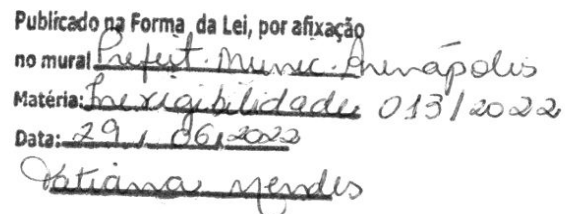 Publicado na Forma da Lei, por afixação
no mural Prefeit. Munic. Arenápolis
Matéria: Inexigibilidade 013/2022
Data: 29 / 06/2022
Tatiana Mendes